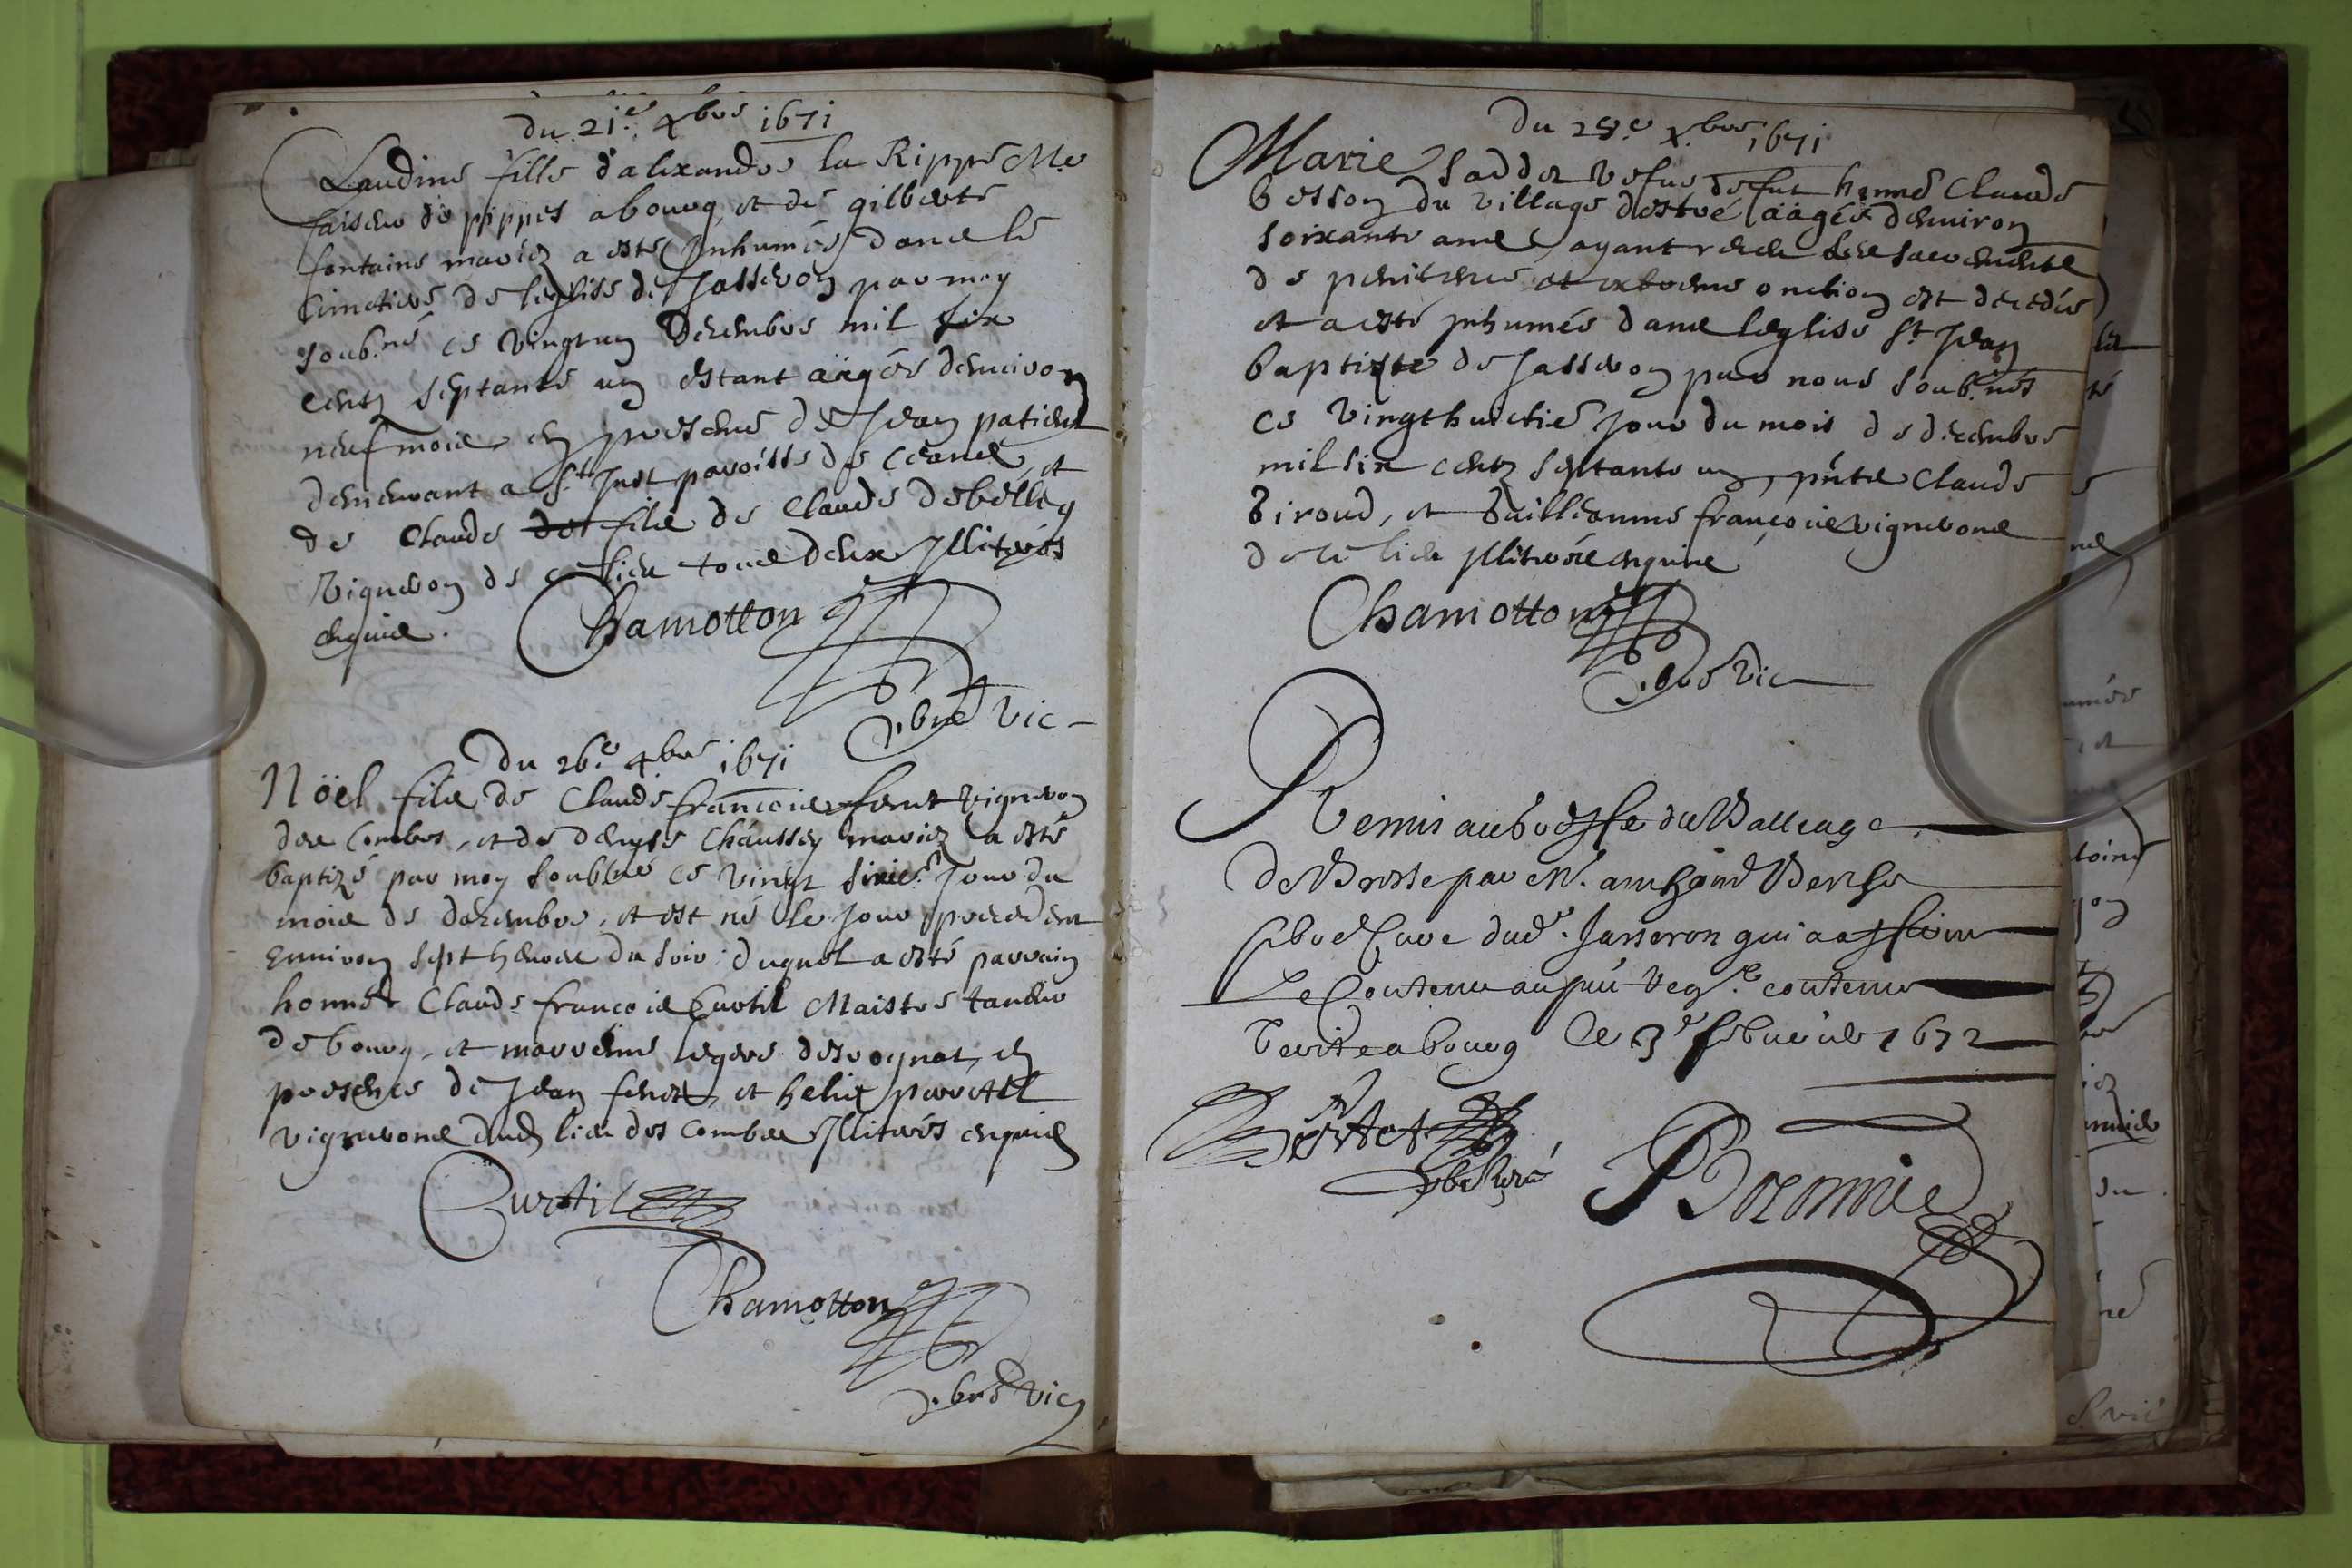 du 21.e xbre 1671
Claudine fille d'alexandre la Rippe Me
faiseur de pippes a bourg et de gilberte
fontaine mariez a esté Inhumée dans le
Cimetiere de leglise de Jasseron par moy
soub.né ce vingt un Decembre mil six
centz septante un estant äägée denviron
neuf mois en presence de Jean patient
demeurant a St Just paroisse de Ceans et
de Claude filz de Claude debelley
Vigneron de ce lieu tous deux Illiterés
enquis.
Chamotton
pbre Vic
Du 26.e xbre 1671
Nöel filz de Claude francois feret vigneron
des Combes, et de denyse Chaussey mariez a esté
baptizé par moy soubné ce vingt sixie. Jour du
mois de decembre, et est né le jour precedent
Environ sept heures du soir: duquel a esté parrain
honnê Claude francois Curtil Maistre taneur
de bourg, et marreine
presence de Jean feret, et helie
vignerons dud lieu des Combes Illiterés enquis
Curtil
Chamotton
pbre Vic
Du 28.e x.bre 1671
Marie Saddet vefue de fut honnê Claude
besson du village äägée denviron
soixante ans, ayant receu les sacrements
de penitence et extreme onction est decedée
et a esté Inhumée dans leglise St Jean
baptiste de Jasseron par nous soub.nés
ce vingt huictie Jour du mois de decembre
mil six centz septante un, pnts Claude
Giroud, et Guilleaume francois vignerons
de ce lieu Illiterés enquis
Chamotton
pbre Vic
Remis au Greffe du Balliage
De Bresse par M.
pbre Cure dud. Jasseron qui a affirmé
Le Contenu au pnt Reg.e contenir
Verité a bourg le 3e febvrier 1672
pbr Curé